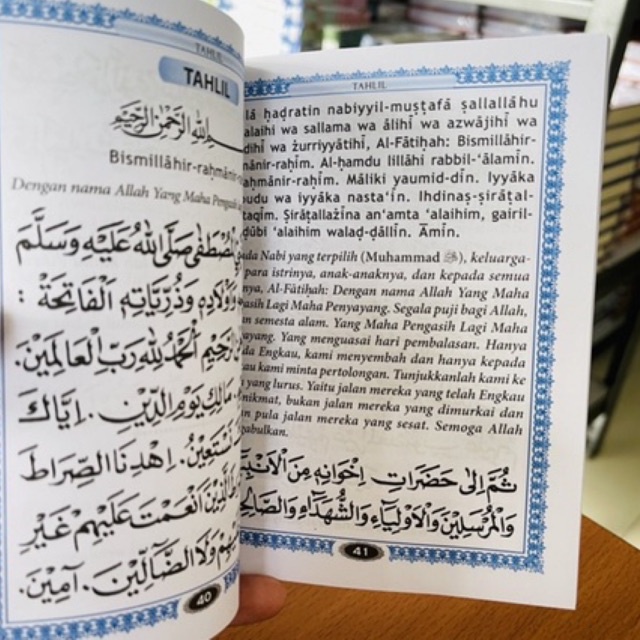 TAHLIL
TAHLIL
الله الرحمن الرحيم
Bismillāhir-raḥmānir-
Dengan nama Allah Yang Maha Pengasih
صَلَّى اللهُ عَلَيْهِ وَسَلَّمَ
وَاَوْلَادِهِ وَذُرِّيَّاتِهِ الْفَاتِحَةْ :
الرَّحِيْمِ اَلْحَمْدُ لِلّٰهِ رَبِّ الْعَالَمِيْنَ.
مَالِكِ يَوْمِ الدِّيْنِ. اِيَّاكَ
نَسْتَعِيْنُ. اِهْدِنَا الصِّرَاطَ
الَّذِيْنَ اَنْعَمْتَ عَلَيْهِمْ غَيْرِ
وَلَا الضَّالِّيْنَ. آمِيْنَ.
40
TAHLIL
lá ḥaḍratin nabiyyil-muṣṭafá ṣallallāhu
alaihi wa sallama wa ālihī wa azwājihī wa
dihī wa żurriyyātihī, Al-Fātiḥah: Bismillāhir-
mānir-raḥīm. Al-ḥamdu lillāhi rabbil-‘ālamīn.
aḥmānir-raḥīm. Māliki yaumid-dīn. Iyyāka
budu wa iyyāka nasta‘īn. Ihdinaṣ-ṣirāṭal-
taqīm. Ṣirāṭallażīna an‘amta ‘alaihim, gairil-
ḍūbi ‘alaihim walaḍ-ḍāllīn. Āmīn.
da Nabi yang terpilih (Muhammad ﷺ), keluarga-
para istrinya, anak-anaknya, dan kepada semua
nya, Al-Fātiḥah: Dengan nama Allah Yang Maha
asih Lagi Maha Penyayang. Segala puji bagi Allah,
semesta alam. Yang Maha Pengasih Lagi Maha
yang. Yang menguasai hari pembalasan. Hanya
da Engkau, kami menyembah dan hanya kepada
u kami minta pertolongan. Tunjukkanlah kami ke
yang lurus. Yaitu jalan mereka yang telah Engkau
nikmat, bukan jalan mereka yang dimurkai dan
n pula jalan mereka yang sesat. Semoga Allah
gabulkan.
ثُمَّ اِلَى حَضَرَاتِ اِخْوَانِهِ مِنَ الْاَنْبِيَ
وَالْمُرْسَلِيْنَ وَالْاَوْلِيَاءِ وَالشُّهَدَاءِ وَالصَّالِحِ
41